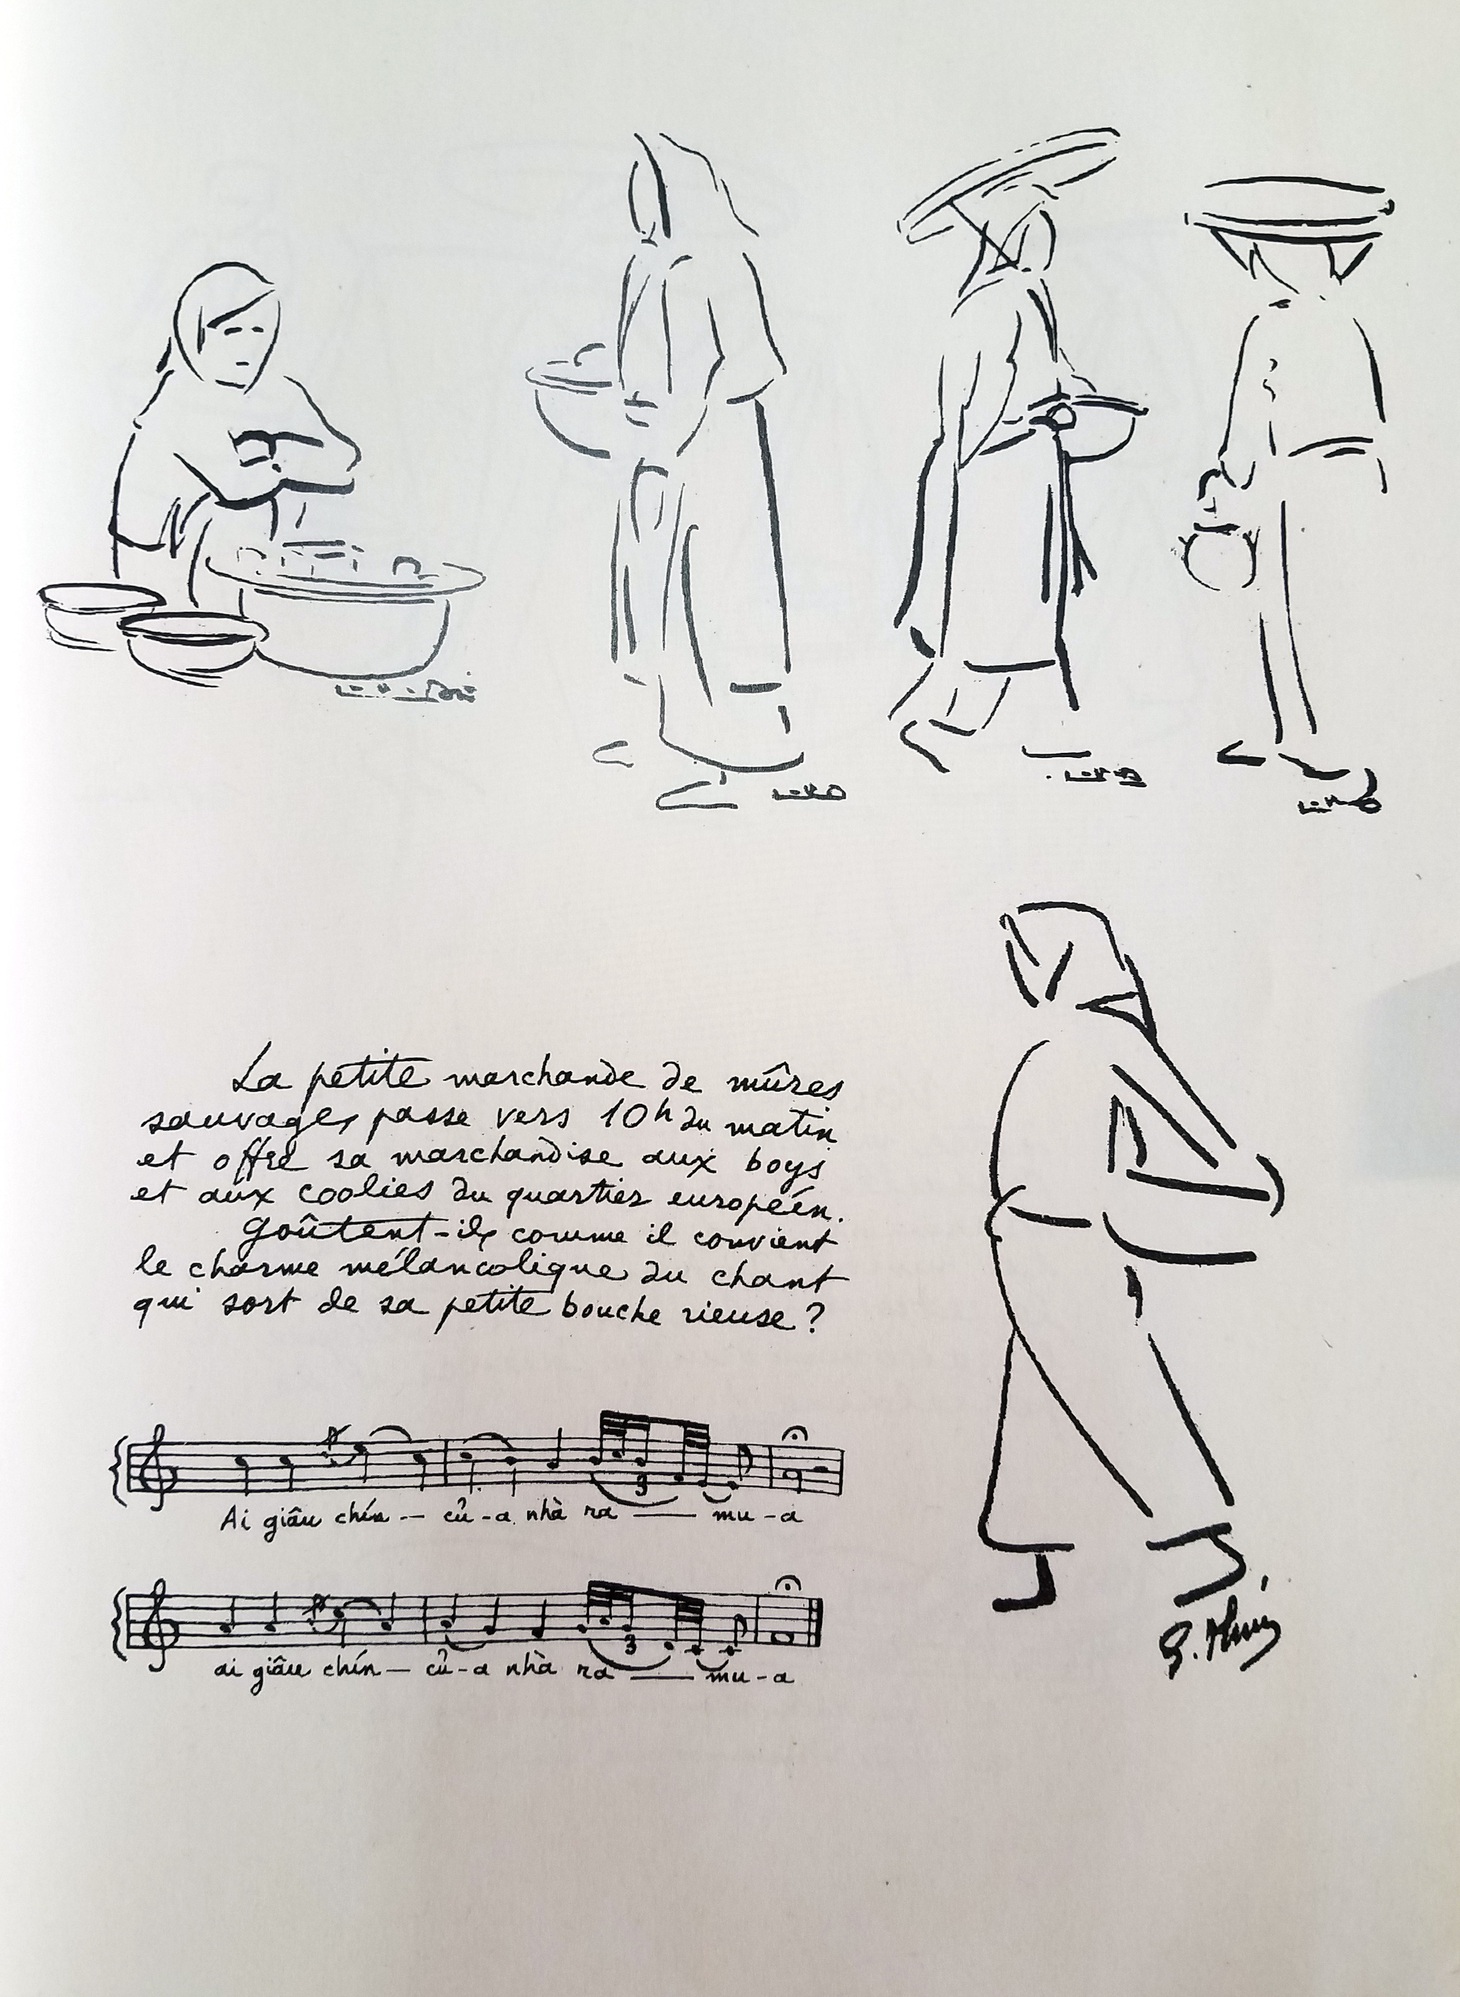 La petite marchande de mûres
sauvages passe vers 10h du matin
et offre sa marchandise aux boys
et aux coolies du quartier européen.
Goûtent-ils comme il convient
le charme mélancolique du chant
qui sort de sa petite bouche rieuse ?
3
Ai giâu chín -- củ-a nhà ra — mu-a
3
ai giâu chín — củ-a nhà ra — mu-a